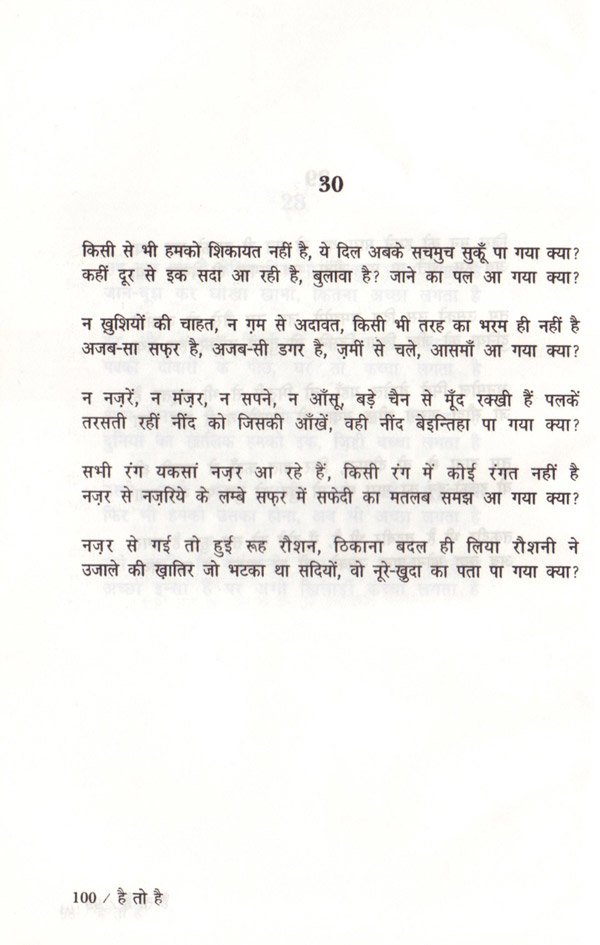 30
किसी से भी हमको शिकायत नहीं है, ये दिल अबके सचमुच सुकूँ पा गया क्या?
कहीं दूर से इक सदा आ रही है, बुलावा है? जाने का पल आ गया क्या?
न ख़ुशियों की चाहत, न ग़म से अदावत, किसी भी तरह का भरम ही नहीं है
अजब-सा सफ़र है, अजब-सी डगर है, ज़मीं से चले, आसमाँ आ गया क्या?
न नज़रें, न मंज़र, न सपने, न आँसू, बड़े चैन से मूँद रक्खी हैं पलकें
तरसती रहीं नींद को जिसकी आँखें, वही नींद बेइन्तिहा पा गया क्या?
सभी रंग यकसां नज़र आ रहे हैं, किसी रंग में कोई रंगत नहीं है
नज़र से नज़रिये के लम्बे सफ़र में सफेदी का मतलब समझ आ गया क्या?
नज़र से गई तो हुई रूह रौशन, ठिकाना बदल ही लिया रौशनी ने
उजाले की ख़ातिर जो भटका था सदियों, वो नूरे-खुदा का पता पा गया क्या?
100 / है तो है